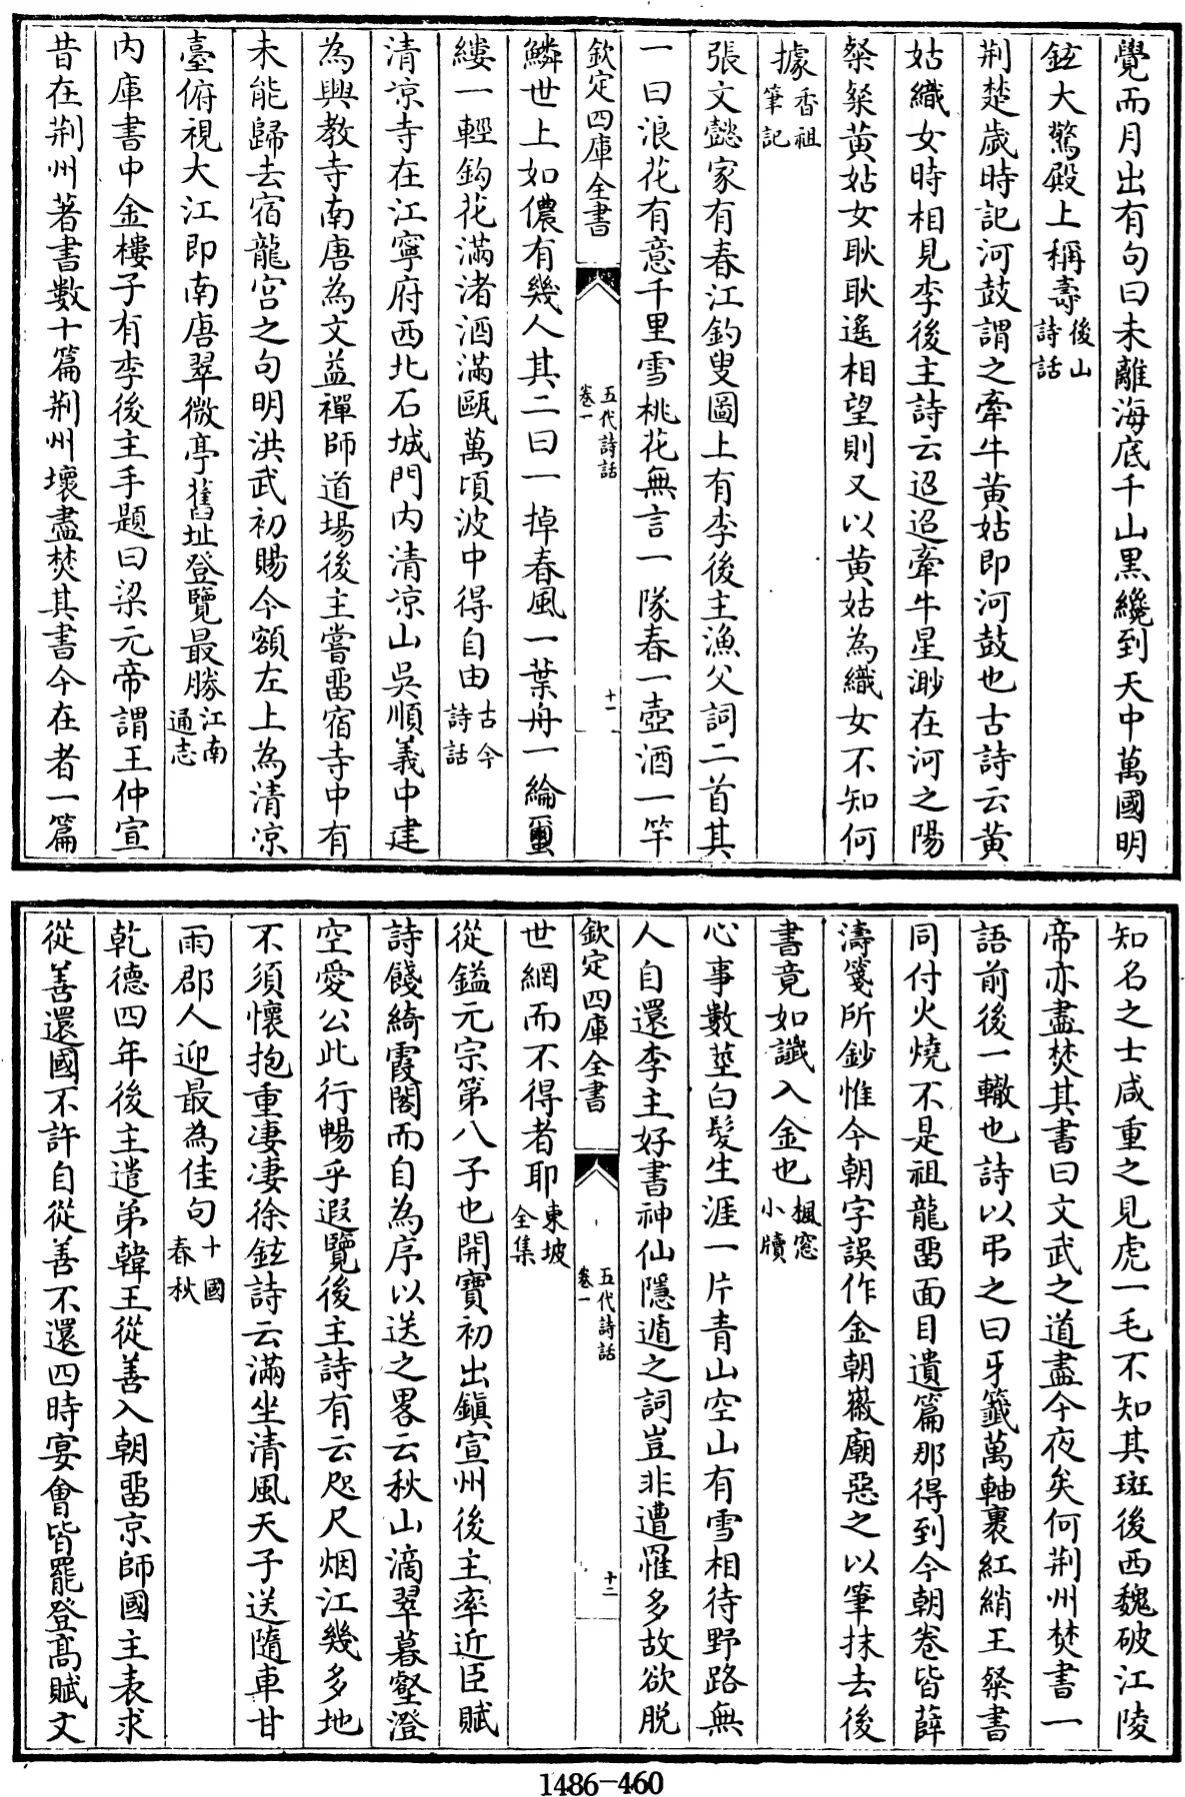 覺而月出有句曰未離海底千山黑纔到天中萬國明
鉉大驚殿上稱壽後山詩話
荆楚歲時記河鼓謂之牽牛黃姑即河鼓也古詩云黃
姑織女時相見李後主詩云迢迢牽牛星渺在河之陽
粲粲黃姑女耿耿遙相望則又以黃姑為織女不知何
據香祖筆記
張文懿家有春江釣叟圖上有李後主漁父詞二首其
一曰浪花有意千里雪桃花無言一隊春一壺酒一竿
欽定四庫全書
五代詩話
卷一
十一
鱗世上如儂有幾人其二曰一掉春風一葉舟一綸蠒
縷一輕鈎花滿渚酒滿甌萬頃波中得自由古今詩話
清涼寺在江寧府西北石城門內清涼山吳順義中建
為興教寺南唐為文益禪師道場後主嘗畱宿寺中有
未能歸去宿龍宮之句明洪武初賜今額左上為清涼
臺俯視大江即南唐翠微亭舊址登覽最勝江南通志
內庫書中金樓子有李後主手題曰梁元帝謂王仲宣
昔在荆州著書數十篇荆州壞盡焚其書今在者一篇
知名之士咸重之見虎一毛不知其斑後西魏破江陵
帝亦盡焚其書曰文武之道盡今夜矣何荆州焚書一
語前後一轍也詩以弔之曰牙籤萬軸裹紅綃王粲書
同付火燒不是祖龍畱面目遺篇那得到今朝卷皆薛
濤箋所鈔惟今朝字誤作金朝徽廟惡之以筆抹去後
書竟如讖入金也楓窓小牘
心事數莖白髮生涯一片青山空山有雪相待野路無
人自還李主好書神仙隱遁之詞豈非遭罹多故欲脫
欽定四庫全書
五代詩話
卷一
十二
世網而不得者耶東坡全集
從鎰元宗第八子也開寶初出鎮宣州後主率近臣賦
詩餞綺霞閣而自為序以送之畧云秋山滴翠暮壑澄
空愛公此行暢乎遐覽後主詩有云咫尺烟江幾多地
不須懷抱重凄凄徐鉉詩云滿坐清風天子送隨車甘
雨郡人迎最為佳句十國春秋
乾德四年後主遣弟韓王從善入朝畱京師國主表求
從善還國不許自從善不還四時宴會皆罷登高賦文
1486-460